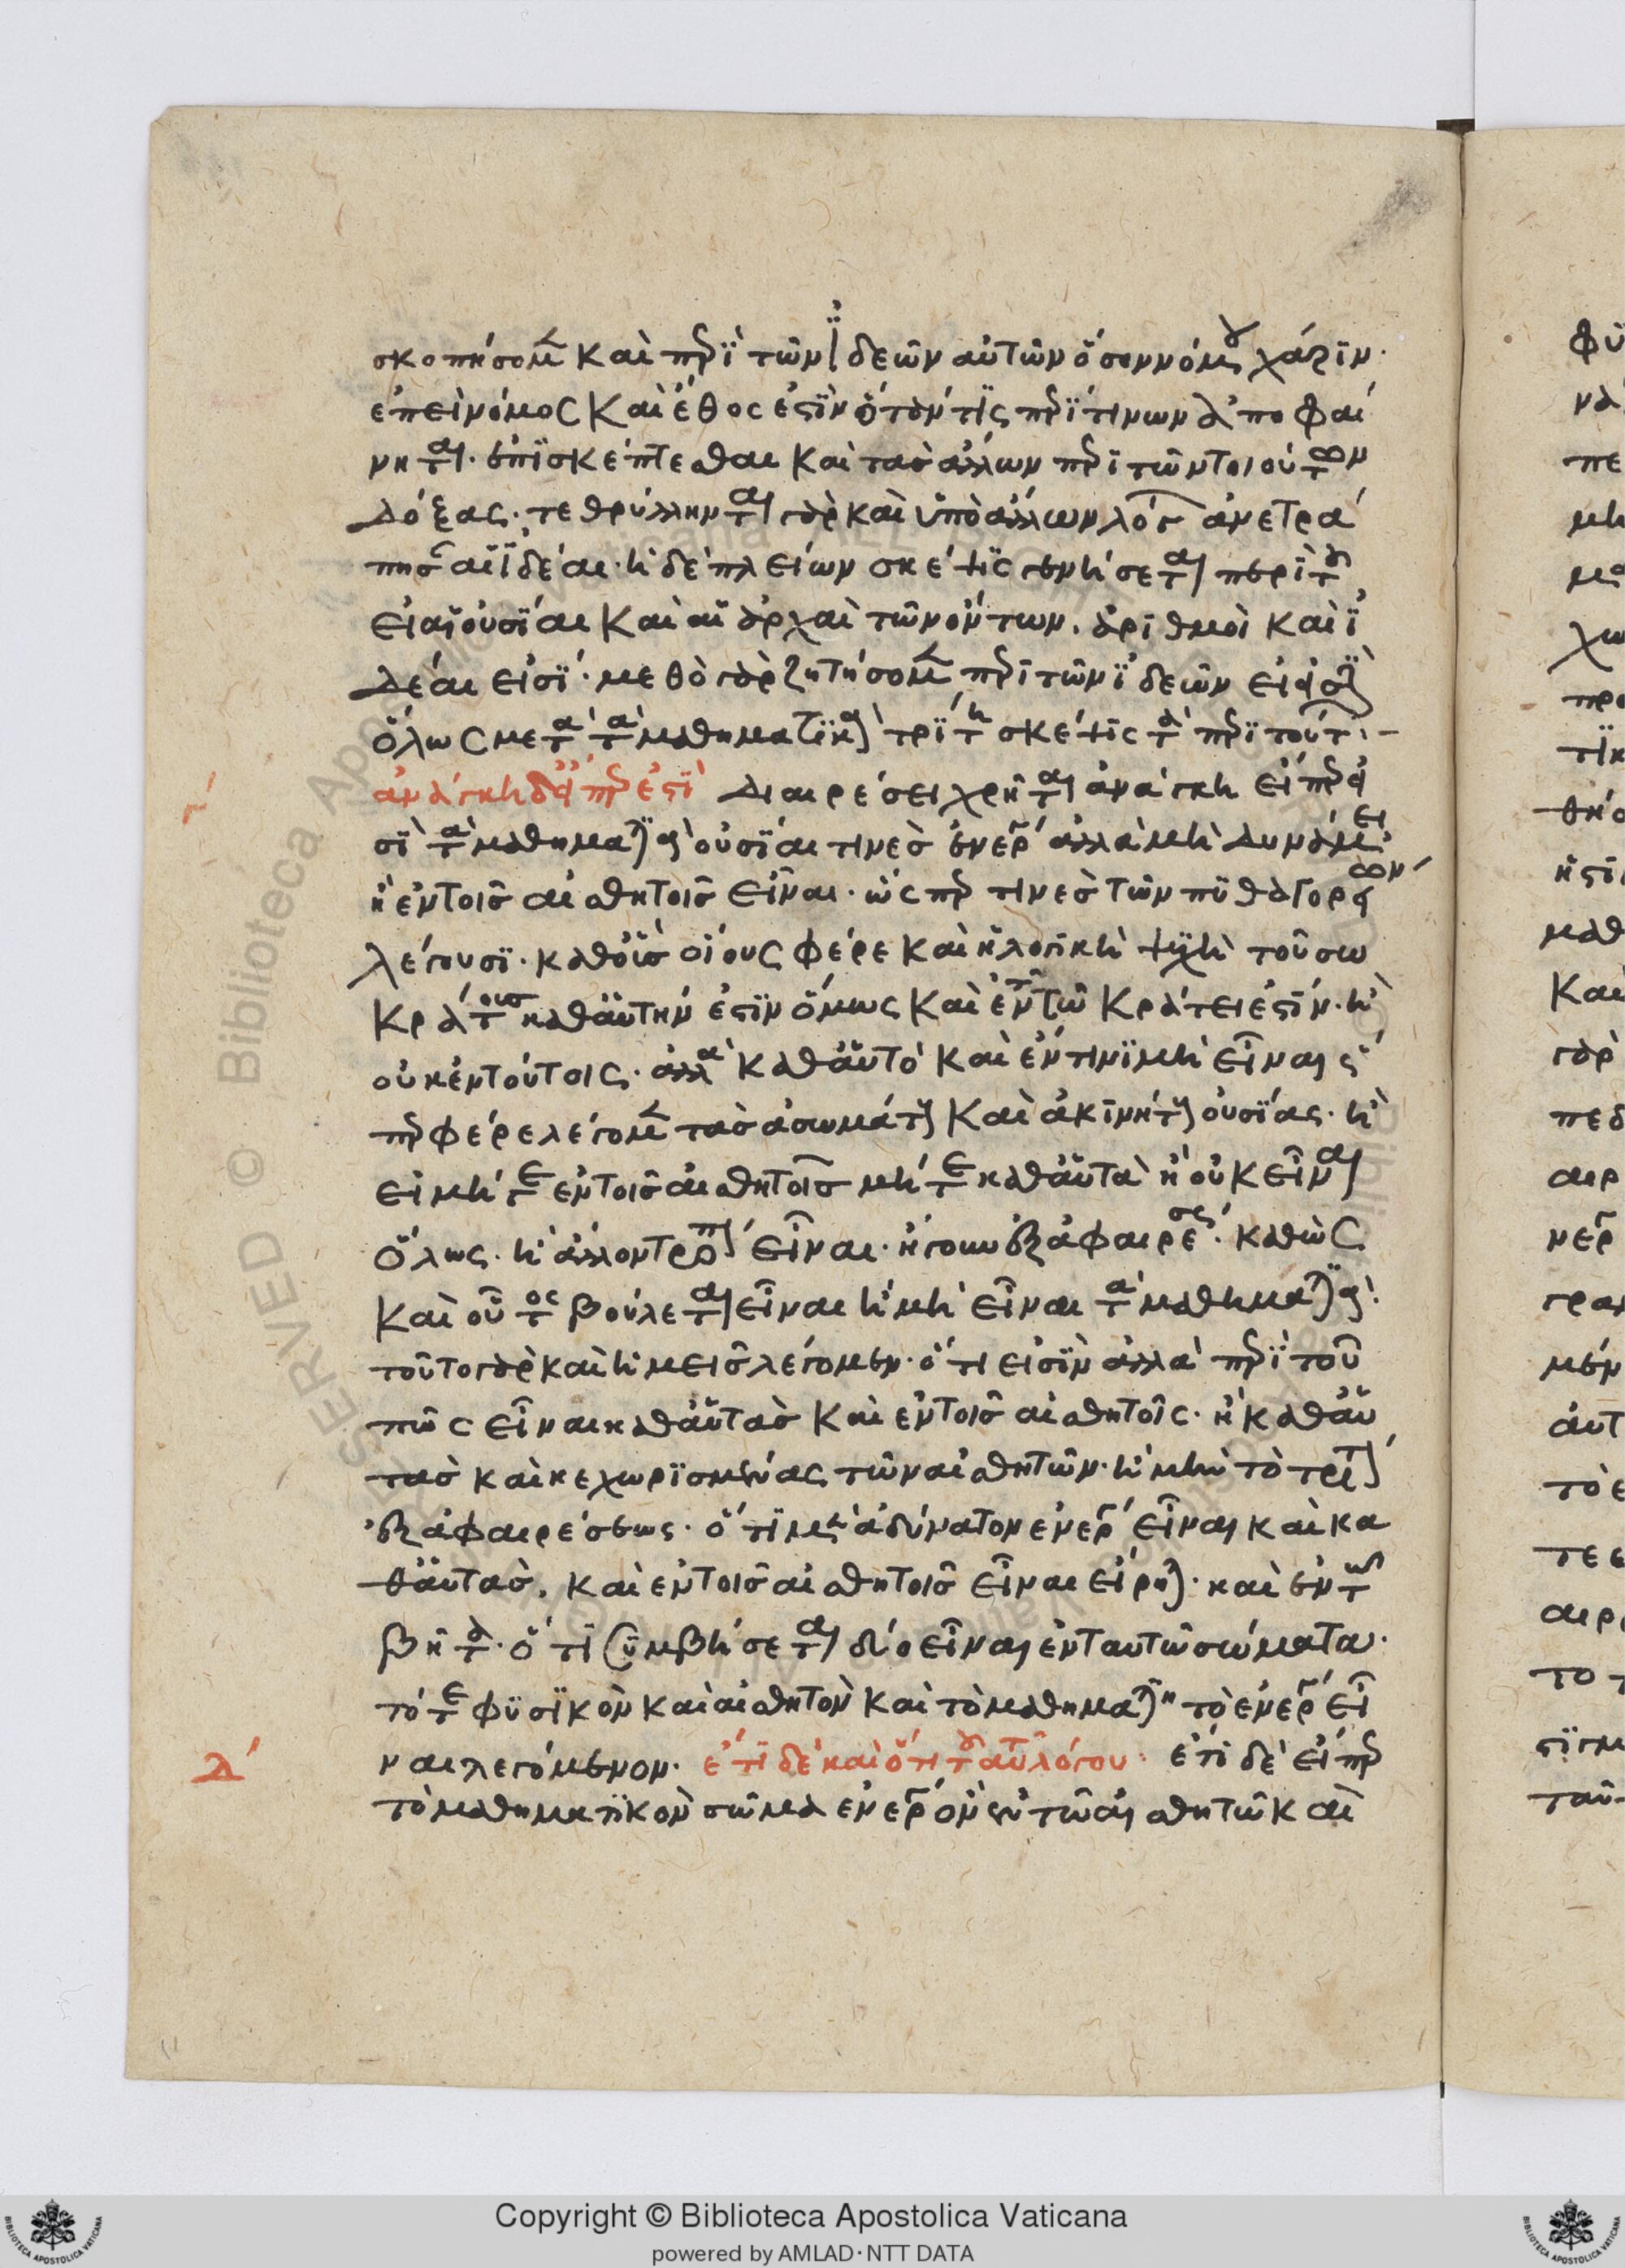 σκοπήσομεν καὶ περὶ τῶν ἰδεῶν αὐτῶν ὅσον νόμου χάριν·
ἐπεὶ νόμος καὶ ἔθος ἐστὶν ὅταν τὶς περί τινων ἀποφαί
νηται· ἐπισκέπτεσθαι καὶ τὰσ ἄλλων περὶ τῶν τοιούτων
δόξας· τεθρύλληνται γὰρ καὶ ὑπὸ ἄλλων λόγ ἀνετρά
πησαν αἱ ἰδέαι· ἡ δὲ πλείων σκέψις γενήσεται περὶ τοῦ
εἰ αἱ οὐσίαι καὶ αἱ ἀρχαὶ τῶν ὄντων. ἀριθμοὶ καὶ ἰ
δέαι εἰσί· μεθὸ γὰρ ζητήσομεν περὶ τῶν ἰδεῶν εἰ εἰσὶν
ὅλως μετὰ τὰ μαθηματικὰ τρίτη σκέψις τὰ περὶ τούτ :-
γ΄ ἀνάγκη δ' εἴπερ ἐστὶ διαιρέσει χρῆται ἀνάγκη εἴπερ εἰ
σὶ τὰ μαθηματικὰ οὐσίαι τινεσ ἐνερ ἀλλὰ μὴ δυνάμει
ἢ ἐν τοῖσ αἰσθητοῖσ εἶναι· ὥς περ τινεσ τῶν πυθαγορείων
λέγουσι· καθοἷσ οἵους φέρε καὶ ἡ λογικὴ ψυχὴ τοῦ σω
κράτους καθαὑτήν ἐστιν ὅμως καὶ ἐν τῶ κράτει ἐστίν· ἢ
οὐκ ἐν τούτοις· ἀλλὰ καθαὑτὸ καὶ ἔν τινι μὴ εἶναι ὥσ
περ φέρε λέγομεν τὰσ ἀσωμάτους καὶ ἀκινήτους οὐσίας· ἢ
εἰ μήτε ἐν τοῖσ αἰσθητοῖσ μήτε καθαὑτὰ ἢ οὐκ εἶναι
ὅλως· ἢ ἄλλον τρόπον εἶναι· ἤγουν ἐξ ἀφαιρέσεως· καθὼς
καὶ οὗτος βούλεται εἶναι ἢ μὴ εἶναι τὰ μαθηματικά·
τοῦτο γὰρ καὶ ἡμεῖσ λέγομεν· ὅτι εἰσὶν ἀλλὰ περὶ τοῦ
πῶς εἶναι καθαὑτὰσ καὶ ἐν τοῖσ αἰσθητοῖς· ἢ καθαὑ
τὰσ καὶ κεχωρισμένας τῶν αἰσθητῶν· ἢ μὴν τὸ τρίτον
ἐξ ἀφαιρέσεως· ὅτι μὲν ἀδύνατον ἐνερ εἶναι καὶ κα
θαὑτὰσ. καὶ ἐν τοῖσ αἰσθητοῖσ εἶναι εἴρηται· καὶ ἐν τῶ
βῆτα· ὅτι συμβήσεται δύο εἶναι ἐν ταυτῶ σώματα·
τό τε φυσικὸν καὶ αἰσθητὸν καὶ τὸ μαθηματικὸν τὸ ἐνερ εἶ
δ΄ ναι λεγόμενον· ἔτι δὲ καὶ ὅτι τοῦ αὐτοῦ λόγου· ἔτι δὲ εἴπερ
τὸ μαθηματικὸν σῶμα ἐνερ ὂν ἐν τῶ αἰσθητῶ καὶ